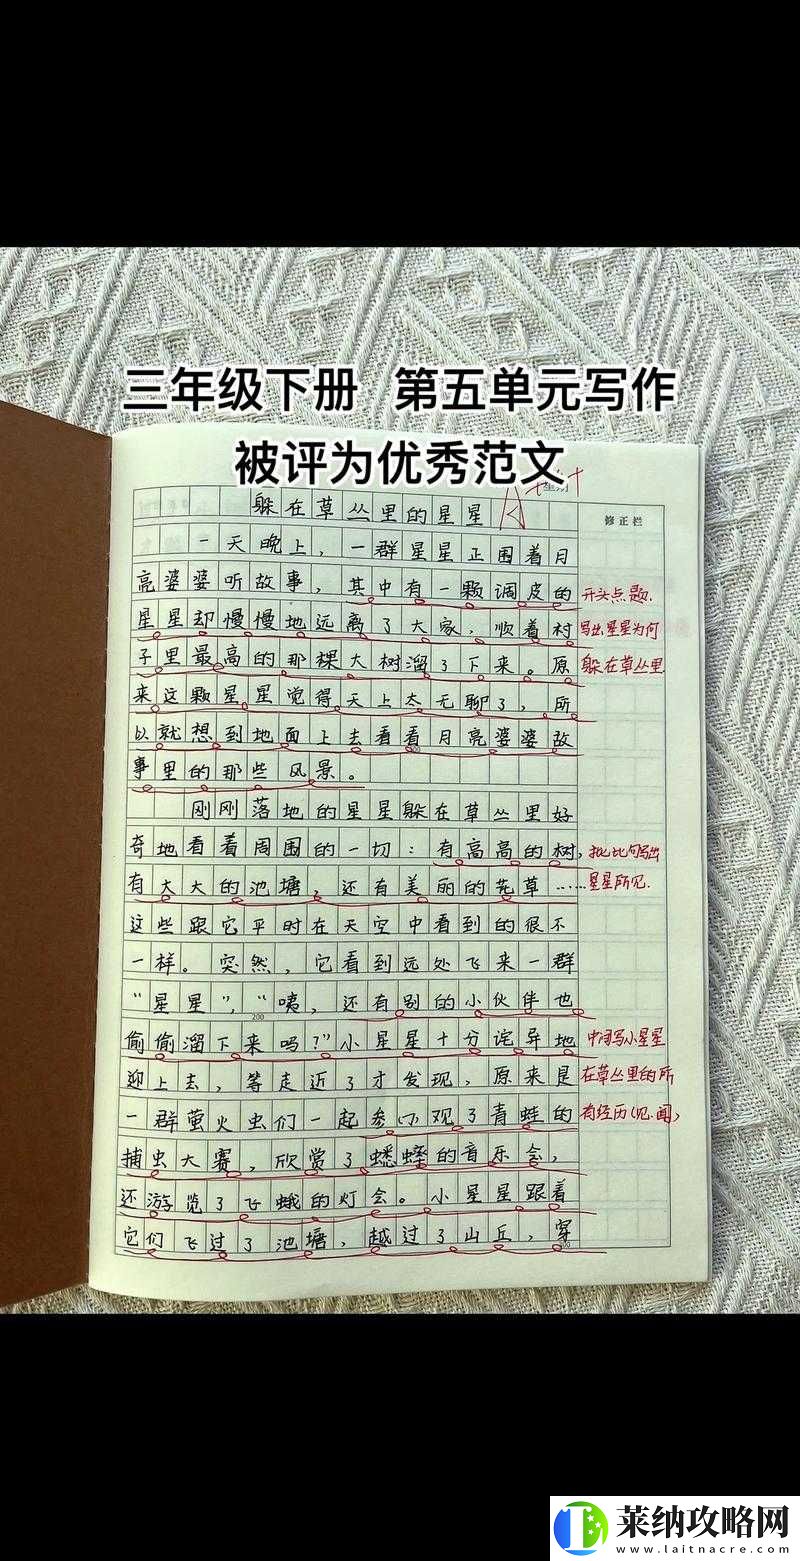 三年级下册 第五单元写作
被评为优秀范文
躲在草丛里的星星
A++
星期
修正栏
一天晚上，一群星星正围着月
亮婆婆听故事，其中有一颗调皮的
开头点题.
星星却慢慢地远离了大家，顺着村
写出星星为何
子里最高的那棵大树溜了下来。原
躲在草丛里.
来这颗星星觉得天上太无聊了，所
以就想到地面上去看看月亮婆婆故
事里的那些风景。
刚刚落地的星星躲在草丛里好
奇地看着周围的一切：有高高的树，
排比句写出
有大大的池塘，还有美丽的花草……
星星所见.
这些跟它平时在天空中看到的很不
一样。突然，它看到远处飞来一群
“星星”，“咦，还有别的小伙伴也
200
偷偷溜下来吗？”小星星十分诧异地
中间写小星星
迎上去，等走近了才发现，原来是
在草丛里的所
一群萤火虫们一起参观了青蛙的
有经历(见、闻)
捕虫大赛，欣赏了蟋蟀的音乐会，
还游览了飞蛾的灯会。小星星跟着
它们飞过了池塘，越过了山丘，穿
莱纳攻略网
www.laitnacre.com